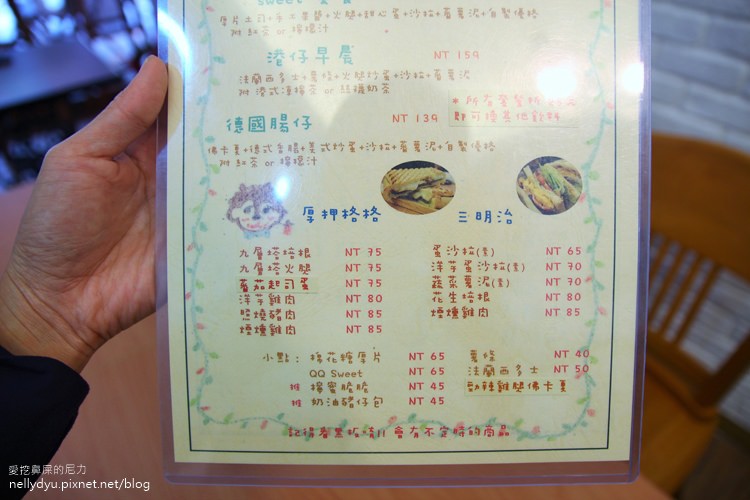 厚片土司+手工果醬+火腿+甜心蛋+沙拉+薯薯泥+自製優格
附 紅茶 or 檸檬汁
港仔早晨 NT 159
法蘭西多士+薯條+火腿炒蛋+沙拉+薯薯泥
附 港式凍檸茶 or 絲襪奶茶
* 所有套餐
即可換其他飲料
德國腸仔 NT 139
佛卡夏+德式香腸+美式炒蛋+沙拉+薯薯泥+自製優格
附 紅茶 or 檸檬汁
厚押格格
九層塔培根 NT 75
九層塔火腿 NT 75
蕃茄起司蛋 NT 75
洋芋雞肉 NT 80
照燒豬肉 NT 85
煙燻雞肉 NT 85
三明治
蛋沙拉(素) NT 65
洋芋蛋沙拉(素) NT 70
蔬菜薯泥(素) NT 70
花生培根 NT 80
煙燻雞肉 NT 85
小點: 棉花糖厚片 NT 65
QQ Sweet NT 65
推 檸蜜脆脆 NT 45
推 奶油豬仔包 NT 45
薯條 NT 40
法蘭西多士 NT 50
勁辣雞腿佛卡夏
記得看黑板唷!! 會有不定時的商品
愛挖鼻屎的尼力
nellydyu.pixnet.net/blog